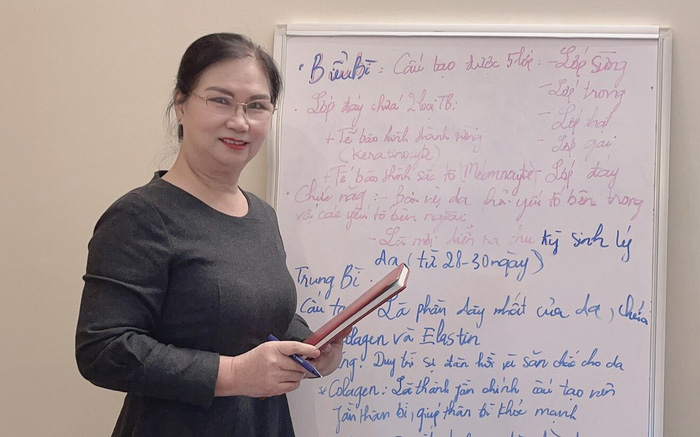 • Biểu Bì: Cấu tạo được 5 lớp: - Lớp sừng
- Lớp trong
- Lớp hạt
- Lớp gai
- Lớp đáy
• Lớp đáy chứa 2 loại TB:
+ Tế bào hình thành sừng
(Keratinocyte)
+ Tế bào sinh sắc tố
Chức năng: - Bảo vệ da bên trong
các yếu tố bên ngoài
- Là nơi diễn ra chu kỳ sinh lý
da (từ 28-30ngày)
Trung Bì
Cấu Là phần dày nhất của da, chứa
và Elastin
Duy trì sự đàn hồi và săn chắc cho da
* Colagen: Là thành phần chính cấu tạo nên
bì, giúp khỏe mạnh